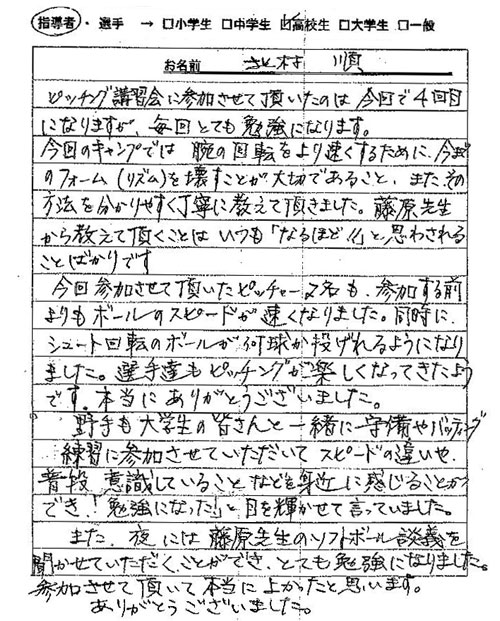 指導者・ 選手 → □小学生 □中学生 ☑高校生 □大学生 □一般
お名前 村 順
ピッチング講習会に参加させて頂いたのは今回で4回目
になりますが、毎回とても勉強になります。
今回のキャンプでは腕の回転をより速くするために、今まで
のフォーム(リズム)を壊すことが大切であること、またその
方法を分かりやすく丁寧に教えて頂きました。藤原先生
から教えて頂くことはいつも「なるほど!!」と思わされる
ことばかりです
今回参加させて頂いたピッチャー2名も、参加する前
よりもボールのスピードが速くなりました。同時に、
シュート回転のボールが何球か投げれるようになり
ました。選手達もピッチングが楽しくなってきたよう
です。本当にありがとうございました。
野手も大学生の皆さんと一緒に守備やバッティング
練習に参加させていただいてスピードの違いや、
普段意識していることなどを身近に感じることが
でき、「勉強になった」と目を輝かせて言っていました。
また、夜には藤原先生のソフトボール談義を
聞かせていただくことができ、とても勉強になりました。
参加させて頂いて本当によかったと思います。
ありがとうございました。